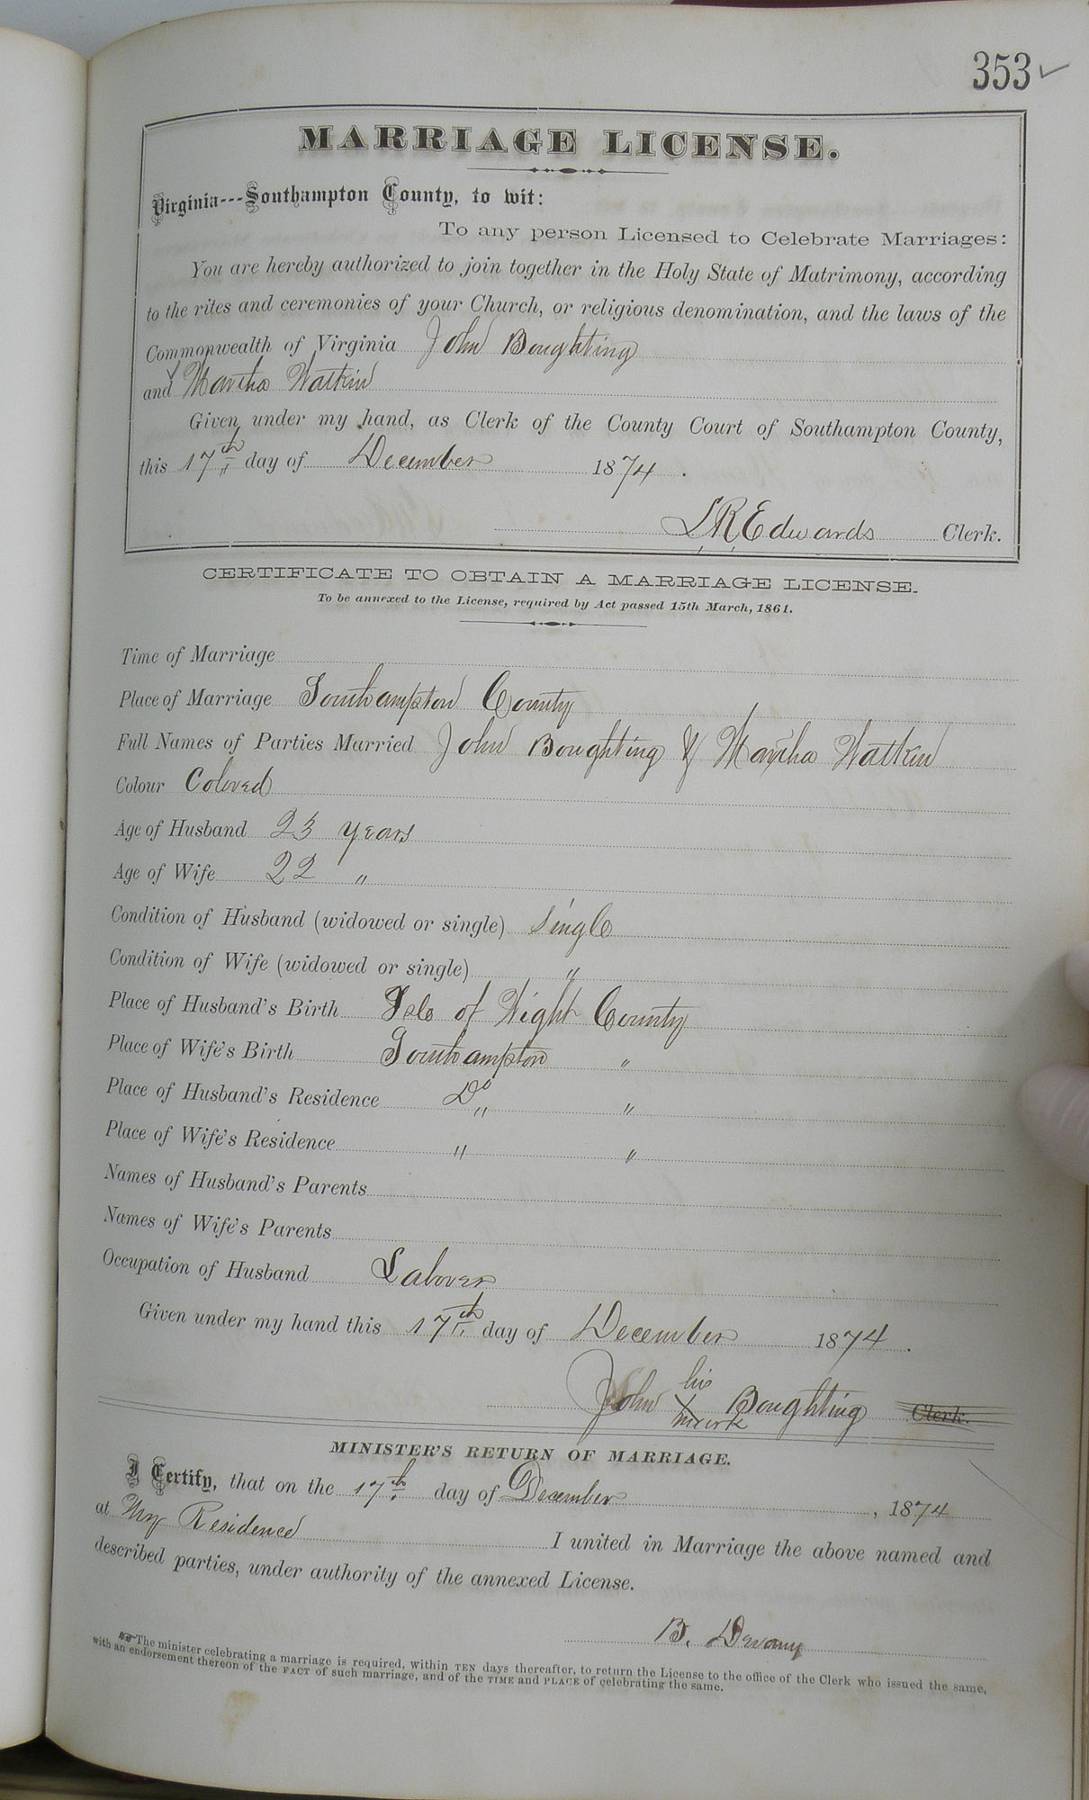 353 ✓
MARRIAGE LICENSE.
Virginia---Southampton County, to wit:
To any person Licensed to Celebrate Marriages:
You are hereby authorized to join together in the Holy State of Matrimony, according
to the rites and ceremonies of your Church, or religious denomination, and the laws of the
Commonwealth of Virginia John Boughting
and Martha Watkin
Given under my hand, as Clerk of the County Court of Southampton County,
this 17th day of December 1874.
L.R. Edwards Clerk.
CERTIFICATE TO OBTAIN A MARRIAGE LICENSE.
To be annexed to the License, required by Act passed 15th March, 1861.
Time of Marriage
Place of Marriage Southampton County
Full Names of Parties Married John Boughting & Martha Watkin
Colour Colored
Age of Husband 23 years
Age of Wife 22 "
Condition of Husband (widowed or single) single
Condition of Wife (widowed or single) "
Place of Husband's Birth Isle of Wight County
Place of Wife's Birth Southampton "
Place of Husband's Residence Do "
Place of Wife's Residence " "
Names of Husband's Parents
Names of Wife's Parents
Occupation of Husband Laborer
Given under my hand this 17th day of December 1874.
his
John X Boughting Clerk.
mark
MINISTER'S RETURN OF MARRIAGE.
I Certify, that on the 17th day of December, 1874
at My Residence I united in Marriage the above named and
described parties, under authority of the annexed License.
B. Devany
The minister celebrating a marriage is required, within TEN days thereafter, to return the License to the office of the Clerk who issued the same,
with an endorsement thereon of the FACT of such marriage, and of the TIME and PLACE of celebrating the same.